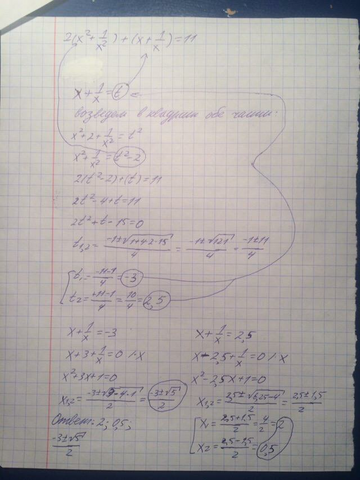 2(x² + 1/x²) + (x + 1/x) = 11
x + 1/x = t
возведем в квадрат обе части:
x² + 2 + 1/x² = t²
x² + 1/x² = t² - 2
2(t² - 2) + (t) = 11
2t² - 4 + t = 11
2t² + t - 15 = 0
t₁,₂ = (-1±√(1+42·15))/4 = (-1±√121)/4 = (-1±11)/4
t₁ = (-11-1)/4 = -3
t₂ = (+11-1)/4 = 10/4 = 2,5
x + 1/x = -3
x + 3 + 1/x = 0 |·x
x² + 3x + 1 = 0
x₁,₂ = (-3±√(9-4·1))/2 = (-3±√5)/2
x + 1/x = 2,5
x - 2,5 + 1/x = 0 |·x
x² - 2,5x + 1 = 0
x₁,₂ = (2,5±√(6,25-4))/2 = (2,5±1,5)/2
x₁ = (2,5+1,5)/2 = 4/2 = 2
x₂ = (2,5-1,5)/2 = 0,5
Ответ: 2; 0,5;
(-3±√5)/2